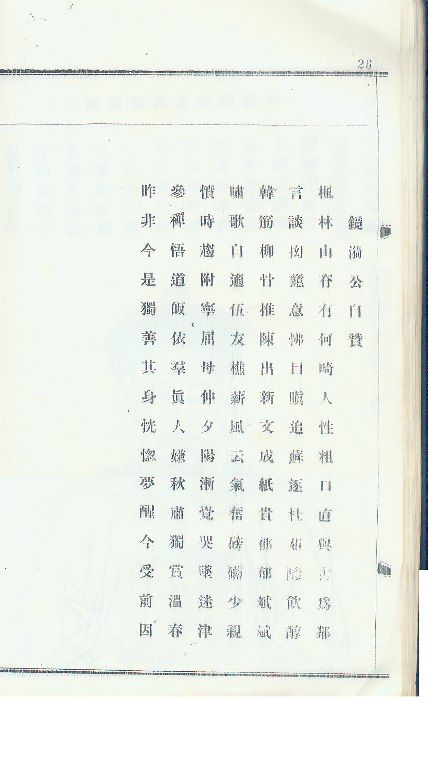 26
鏡漪公自贊
楓林山脊有何畸人性粗口直與古為鄰
言談拗戇意怫目瞋追蘇逐杜飲醇
韓筋柳骨推陳出新文成紙貴郁郁斌斌
嘯歌自適伍友樵薪風云氣奮磅礴少親
憤時趨附寧屈毋伸夕陽漸覺哭嘆迷津
參禪悟道皈依羣眞人嫌秋肅獨賞溫春
昨非今是獨善其身恍惚夢醒今受前因